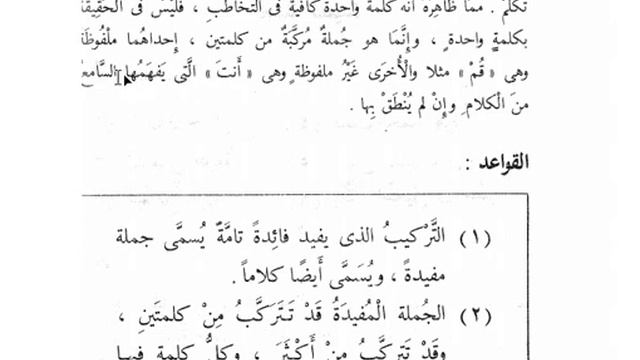 تكلَّمْ . مما ظاهره أنه كلمة واحدة كافية فى التخاطب ، فليس فى الحقيقة
بكلمةٍ واحدةٍ ، وإنَّمَا هو جُملةٌ مُركَّبَةٌ من كلمتين ، إحداهُما ملْفُوظَة
وهى « قُمْ » مثلا والْأُخرَى غَيْرُ ملفوظة وهى « أَنتَ » الَّتى يَفهَمُها السَّامعُ
منَ الْكلامِ وإنْ لم يُنْطَقْ بِها .
القواعد :
(١) التَّرْكيبُ الذى يفيد فائِدةً تامَّةً يُسمَّى جملة
مفيدةً ، ويُسَمَّى أَيضًا كلاماً .
(٢) الجُملة الْمُفيدَةُ قَدْ تَتَرَكَّبُ مِنْ كلمتَينِ ،
وقَدْ تَتركَّبُ مِنْ أَكْثَرَ ، وكلُّ كلمةٍ فيها